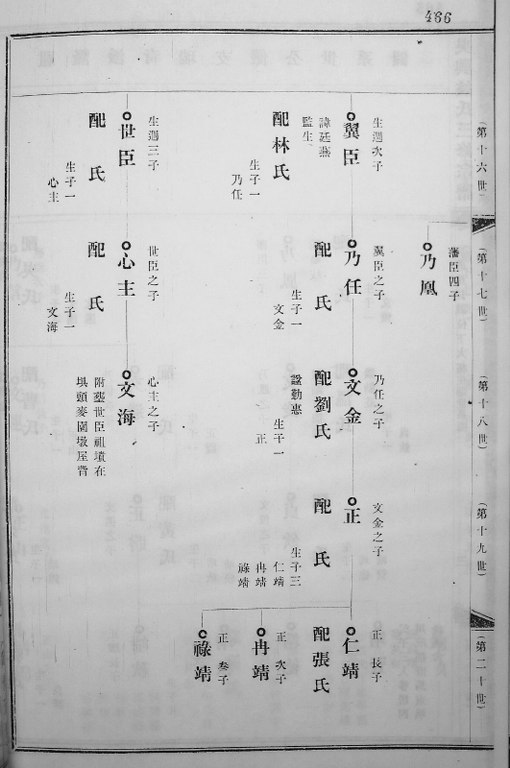 466
(第十六世)
(第十七世)
(第十八世)
(第十九世)
(第二十世)
藩臣四子
乃凰
生遇次子
翼臣
諱廷燕
監生
配林氏
生子一
乃任
翼臣之子
乃任
配 氏
生子一
文金
乃任之子
文金
配劉氏
諡勤惠
生子一
正
文金之子
正
配 氏
生子三
仁靖
冉靖
祿靖
正 長子
仁靖
配張氏
正 次子
冉靖
正 叁子
祿靖
生遇三子
世臣
配 氏
生子一
心主
世臣之子
心主
配 氏
生子一
文海
心主之子
文海
附塟世臣祖墳在
垻頭麥園墩屋背